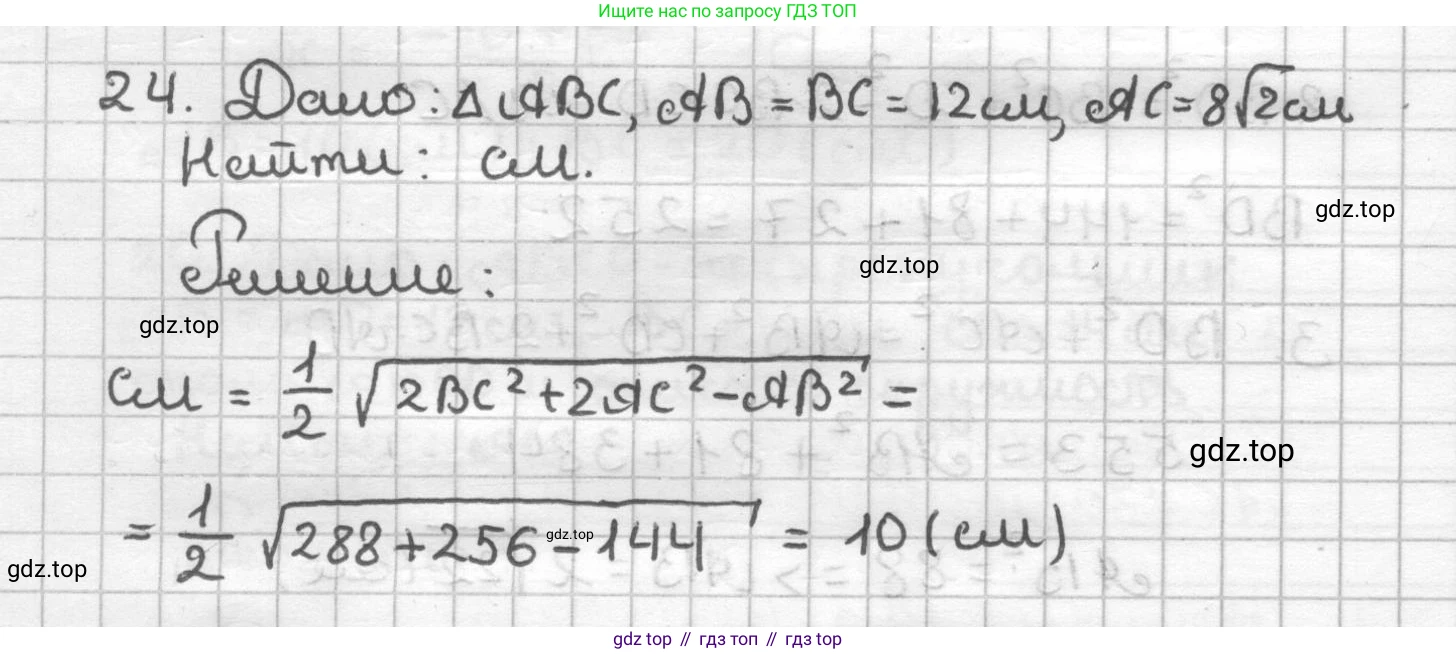 Ищите нас по запросу ГДЗ ТОП
24. Дано: Δ ABC, AB = BC = 12 см, AC = 8√2 см
Найти: CM.
gdz.top
Решение:
gdz.top
gdz.top
CM = 1/2 √(2BC² + 2AC² − AB²) =
gdz.top
= 1/2 √(288 + 256 − 144) = 10 (см)
gdz.top
gdz.top
gdz top // гдз топ // гдз top